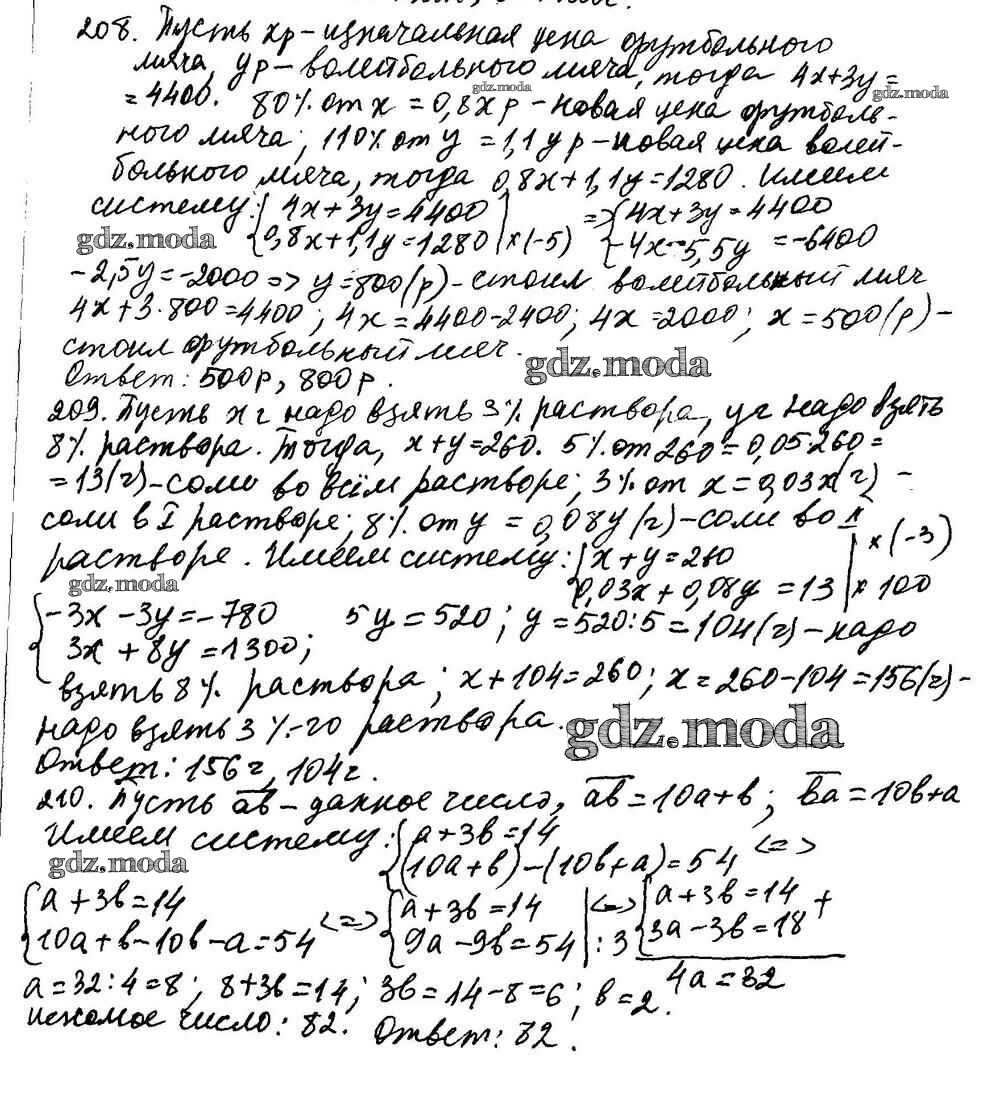 208. Пусть xр – изначальная цена футбольного
мяча, yр – волейбольного мяча, тогда 4x+3y=
=4400. 80% от x = 0,8x р – новая цена футболь-
ного мяча; 110% от y = 1,1y р – новая цена волей-
больного мяча, тогда 0,8x+1,1y=1280. Имеем
систему: { 4x+3y=4400 | => { 4x+3y=4400
0,8x+1,1y=1280 | ×(-5) -4x-5,5y=-6400
-2,5y=-2000 => y=800(р) – стоил волейбольный мяч
4x+3·800=4400; 4x=4400-2400; 4x=2000; x=500(р) –
стоил футбольный мяч.
Ответ: 500р, 800р.
209. Пусть x г надо взять 3% раствора, y г надо взять
8% раствора. Тогда, x+y=260. 5% от 260=0,05·260=
=13(г) – соли во всём растворе; 3% от x=0,03x(г) –
соли в I растворе; 8% от y = 0,08y(г) – соли во II
растворе. Имеем систему: { x+y=260 | ×(-3)
0,03x+0,08y=13 | ×100
{ -3x-3y=-780 5y=520; y=520:5=104(г) – надо
3x+8y=1300;
взять 8% раствора; x+104=260; x=260-104=156(г) –
надо взять 3%-го раствора.
Ответ: 156г, 104г.
210. Пусть ab – данное число, ab=10a+b; ba=10b+a
Имеем систему: { a+3b=14
(10a+b)-(10b+a)=54 <=>
{ a+3b=14 <=> { a+3b=14 | <=> { a+3b=14 +
10a+b-10b-a=54 9a-9b=54 | :3 3a-3b=18
4a=32
a=32:4=8; 8+3b=14; 3b=14-8=6; b=2.
искомое число: 82. Ответ: 82.
gdz.moda
gdz.moda
gdz.moda
gdz.moda
gdz.moda
gdz.moda
gdz.moda